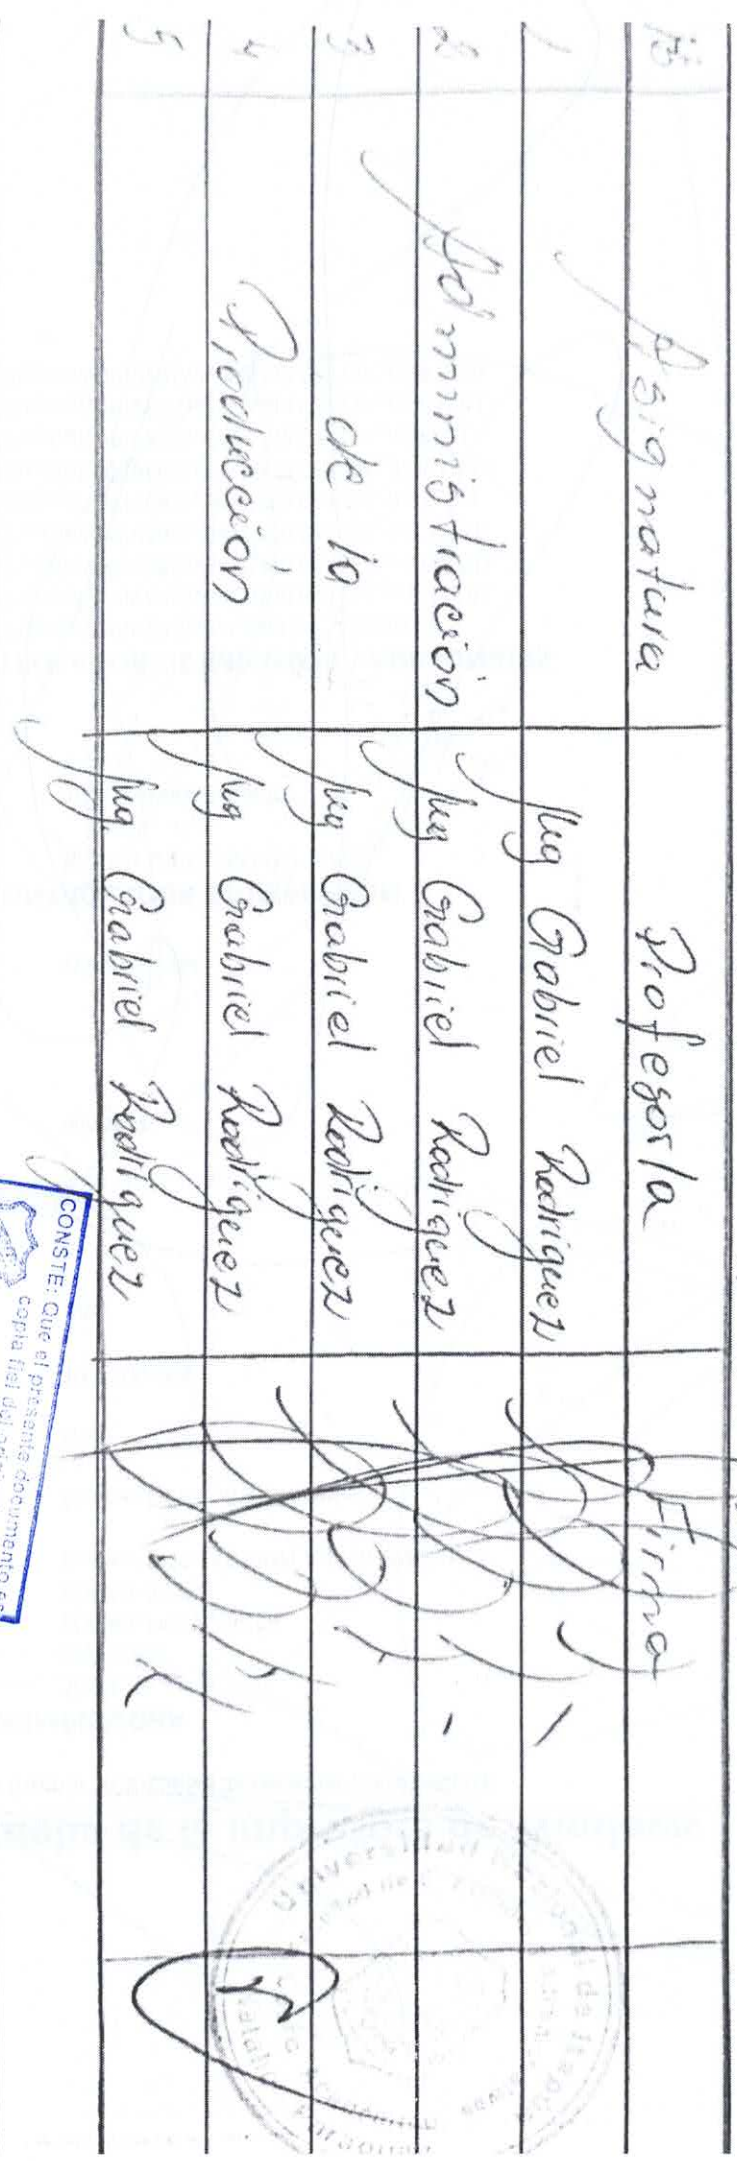 Nº Asignatura Profesor/a Firma
1 Ing Gabriel Rodriguez
2 Administración Ing Gabriel Rodriguez
3 de la Ing Gabriel Rodriguez
4 Producción Ing Gabriel Rodriguez
5 Ing. Gabriel Rodriguez
Universidad Nacional de Itapúa
CONSTE: Que el presente documento es
copia fiel del